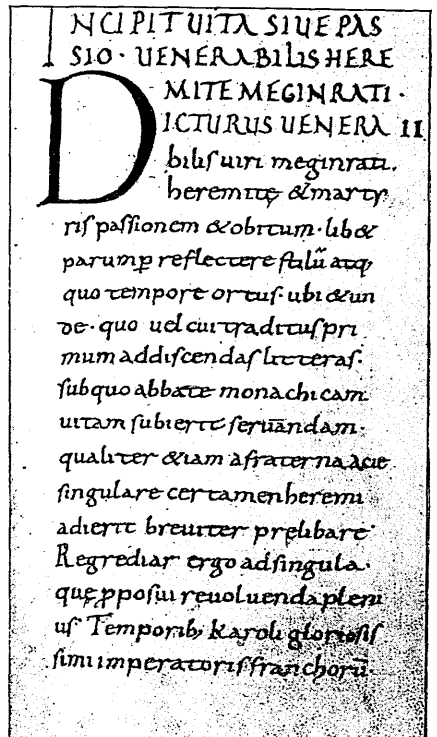 INCIPIT UITA SIUE PAS
SIO · UENERABILIS HERE
MITE MEGINRATI ·
DICTURUS UENERA II
bilis uiri meginrati.
heremitę & marty
ris passionem & obitum · lib&
parump̲ reflectere stilū atq;
quo tempore ortus · ubi & un
de · quo uel cui traditus pri
mum addiscendas litteras ·
sub quo abbate monachicam
uitam subierit seruandam ·
qualiter &iam a fraterna acie
singulare certamen heremi
adierit breuiter pręlibare ·
Regrediar ergo ad singula ·
quę p̲posui reuoluenda pleni
us · Temporib; karoli gloriosis
simi imperatoris franchorū ·